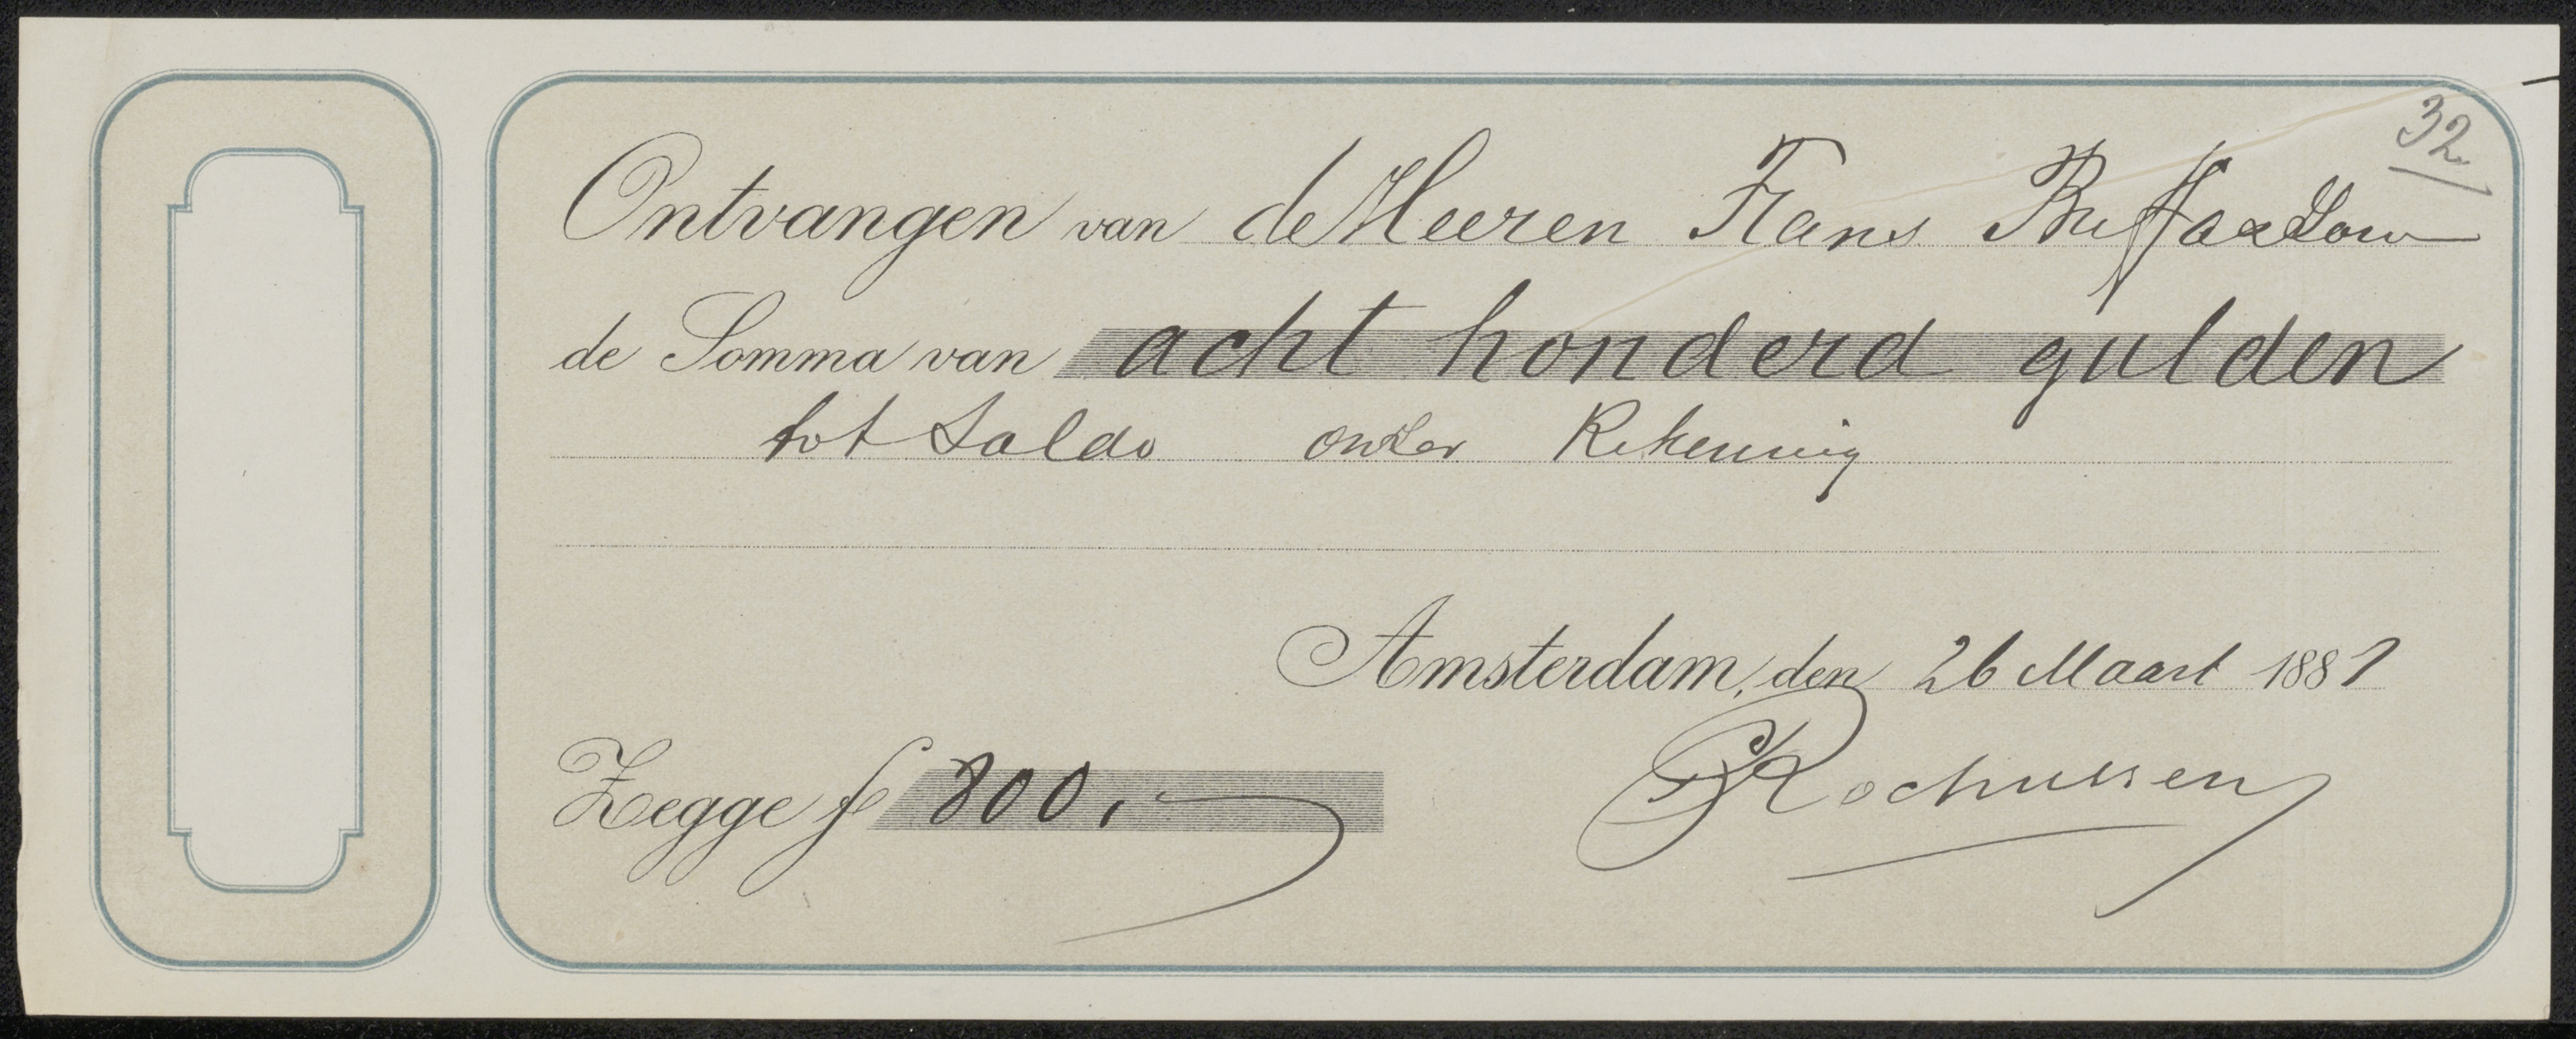 32
Ontvangen van de Heeren Frans Buffa & Zonen
de Somma van acht honderd gulden
tot Saldo onzer Rekening
Amsterdam, den 26 Maart 1881
Zegge f 800,-
Rochussen